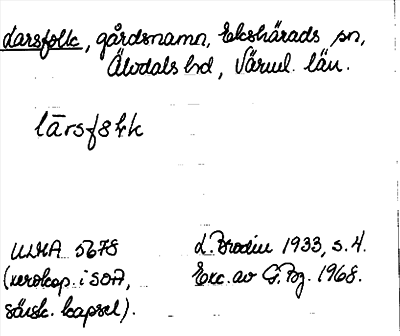 Larsfolk, gårdsnamn, Ekshärads sn,
Älvdals hd, Värml. län.
ULMA 5678
L. Brodin 1933, s. 4.
(xerokop. i SOA,
Exc. av G. Bz. 1968.
särsk. kapsel).